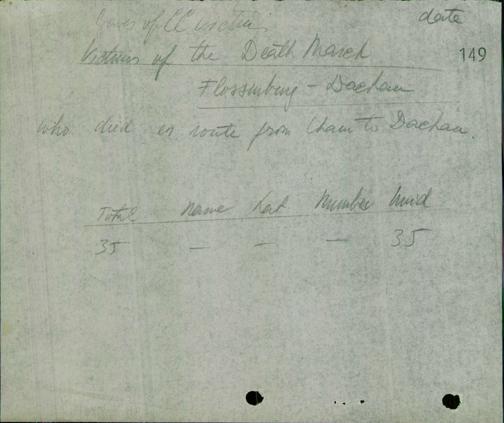 Graves of CC victims
date
Victims of the Death March
149
Flossenburg - Dachau
who died en route from Cham to Dachau.
Total Name Number Unid
35 - - - 35